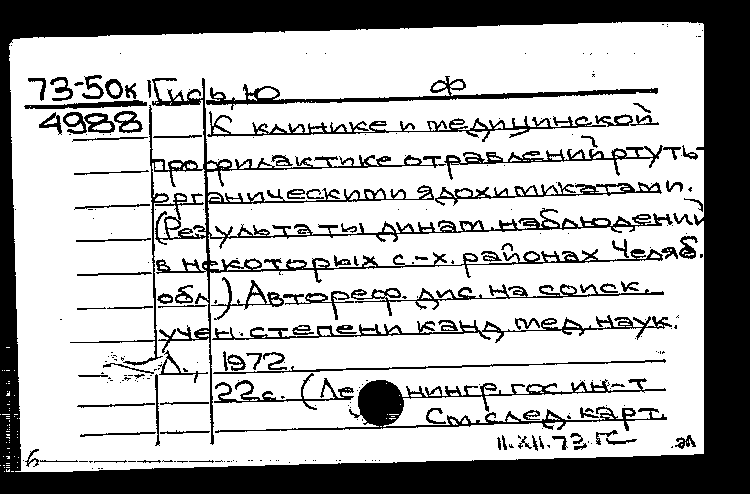 73-50к Гись, Ю Ф
4988 К клинике и медицинской
профилактике отравлений ртуть-
органическими ядохимикатами.
(Результаты динам. наблюдений
в некоторых с.-х. районах Челяб.
обл.). Автореф. дис. на соиск.
учен. степени канд. мед. наук.
Л., 1972.
22с. (Ле нингр. гос ин-т
См. след. карт.
11.XII.73 ГС эл
б